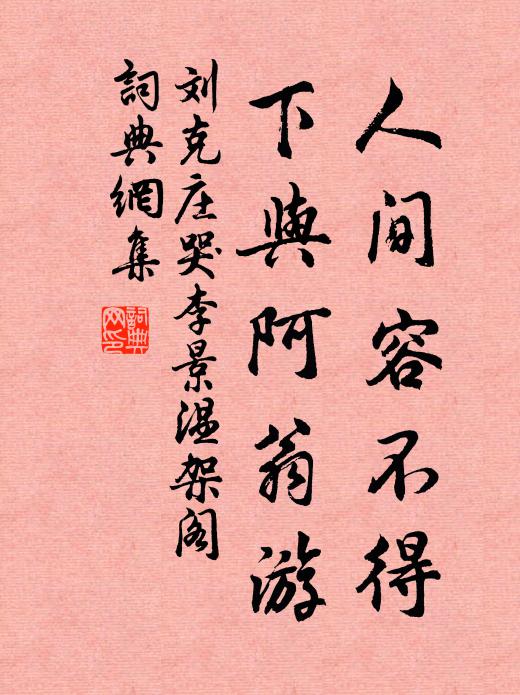 人间容不得
下與阿翁游
刘克庄哭李景温架阁
詞典網集
詞典
网印